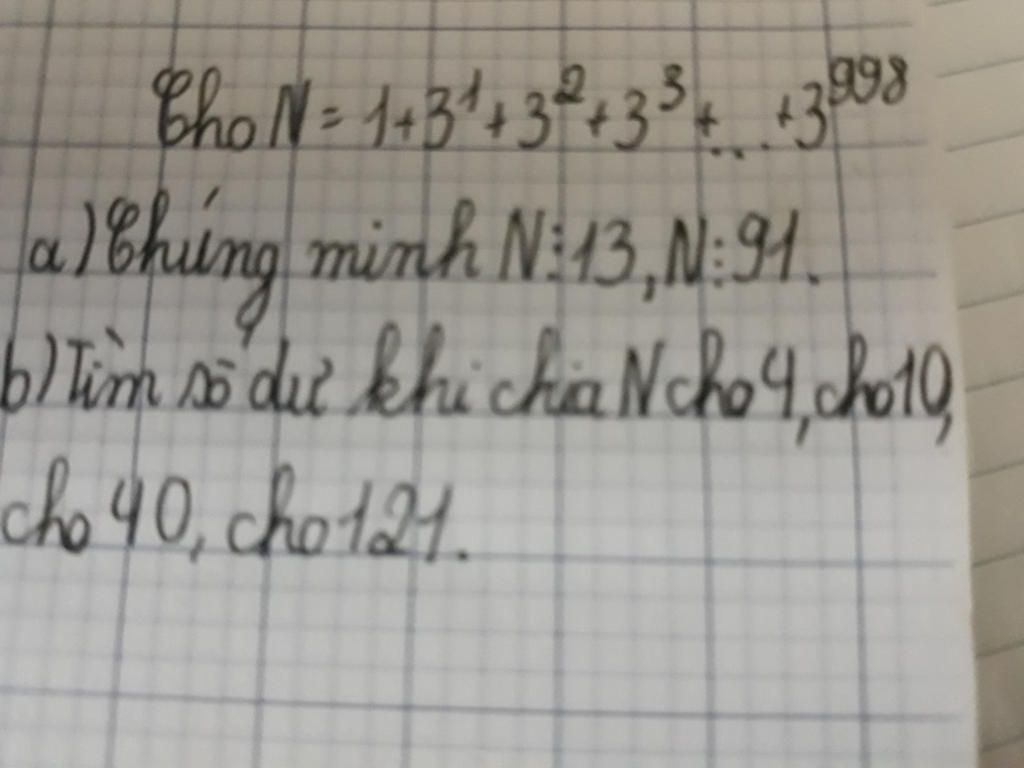 Cho N = 1+3¹+3²+3³+...+3⁹⁹⁸
a) Chứng minh N⋮13, N⋮91.
b) Tìm số dư khi chia N cho 4, cho 10,
cho 40, cho 121.